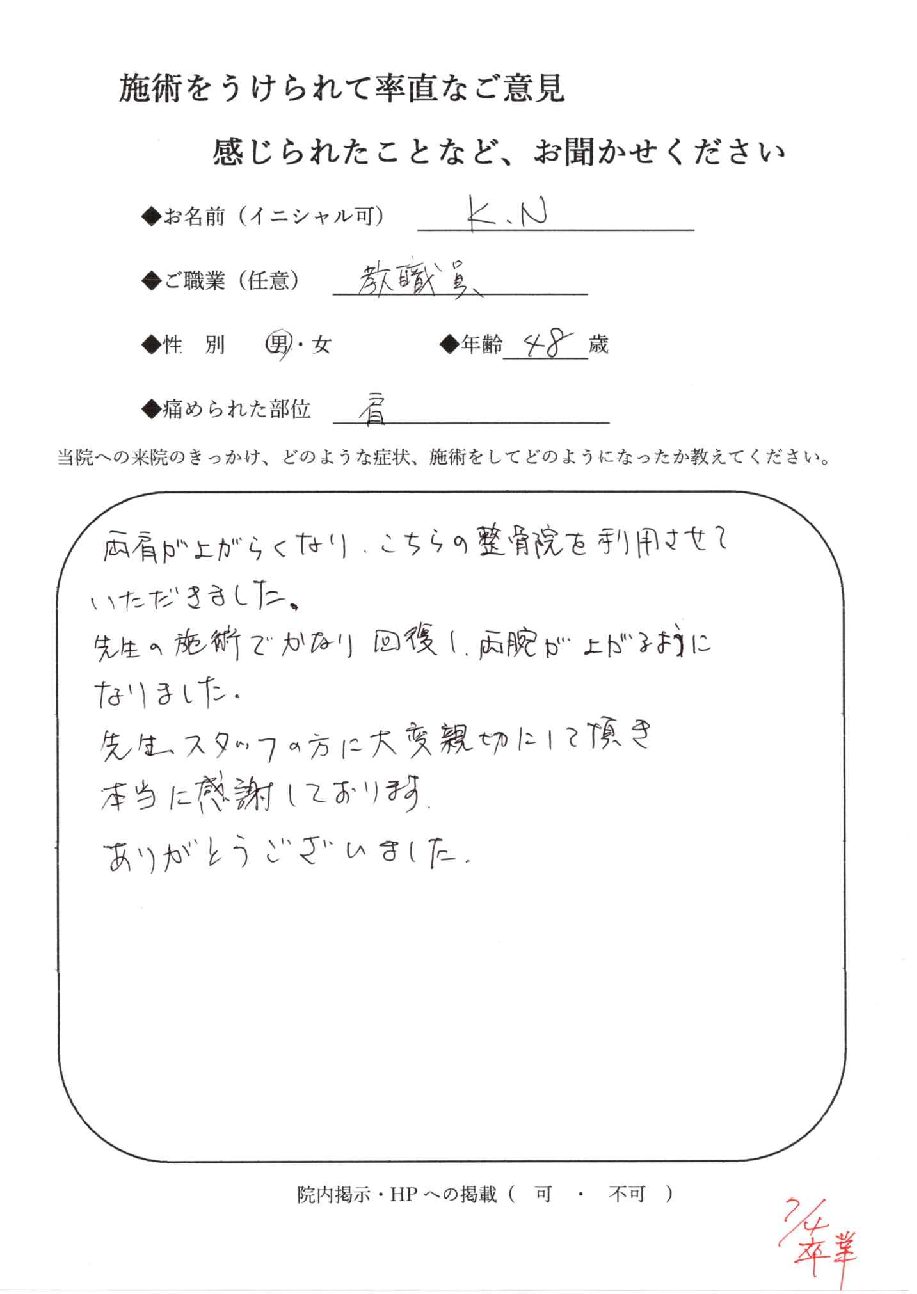 施術をうけられて率直なご意見
感じられたことなど、お聞かせください
◆お名前（イニシャル可） K.N
◆ご職業（任意） 教職員
◆性 別 男・女 ◆年齢 48 歳
◆痛められた部位 肩
当院への来院のきっかけ、どのような症状、施術をしてどのようになったか教えてください。
両肩が上がらくなり、こちらの整骨院を利用させて
いただきました。
先生の施術でかなり回復し、両腕が上がるように
なりました。
先生、スタッフの方に大変親切にして頂き
本当に感謝しております。
ありがとうございました。
院内掲示・HPへの掲載（ 可 ・ 不可 ）
7/4
卒業